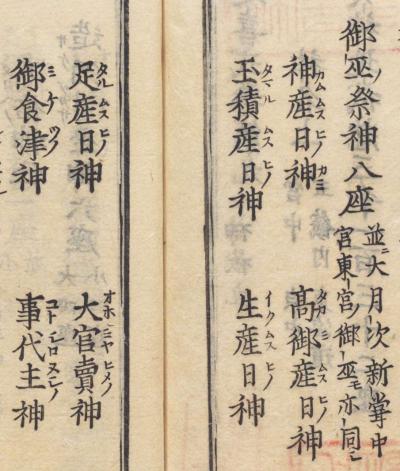 御巫ノ祭神八座
並ニ大月次新嘗中
宮東宮ノ御巫モ亦同シ
神産日神
カムムスヒノカミ
高御産日神
タカミムスヒノ
玉積産日神
タマルムスヒノ
生産日神
イクムスヒノ
足産日神
タルムスヒノ
大宮賣神
オホミヤヒメノ
御食津神
ミケツノ
事代主神
コトシロヌシノ